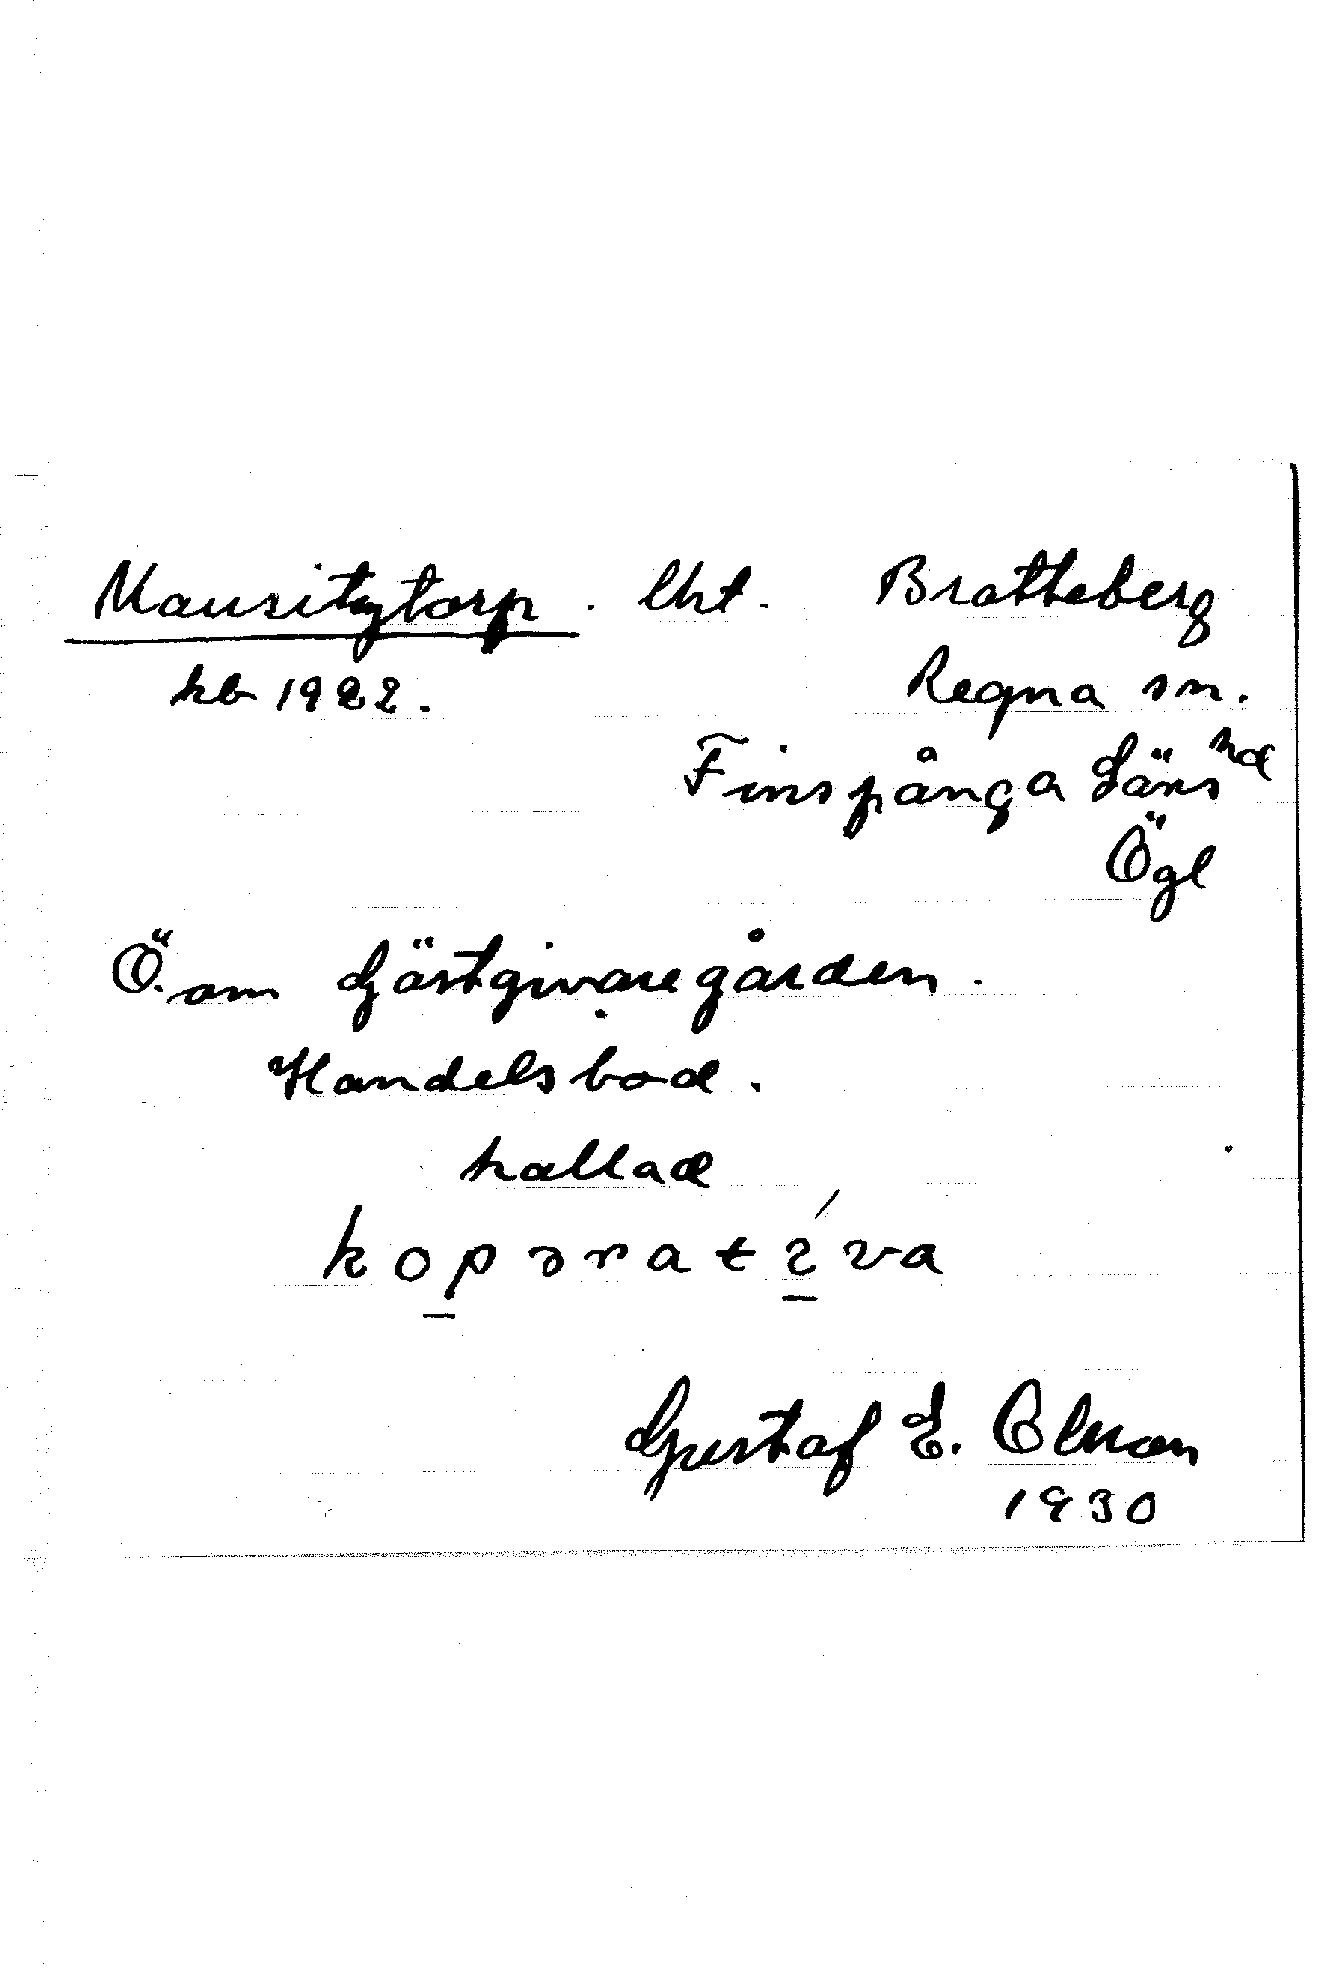 Mausitytorp. lht. Bratteberg
kb 1922. Regna sn.
Finspånga Läns hd
Ögl
Ö. om Gästgivaregården.
Handelsbod.
kallad
kopərati̱va
Gustaf E. Olsson
1930